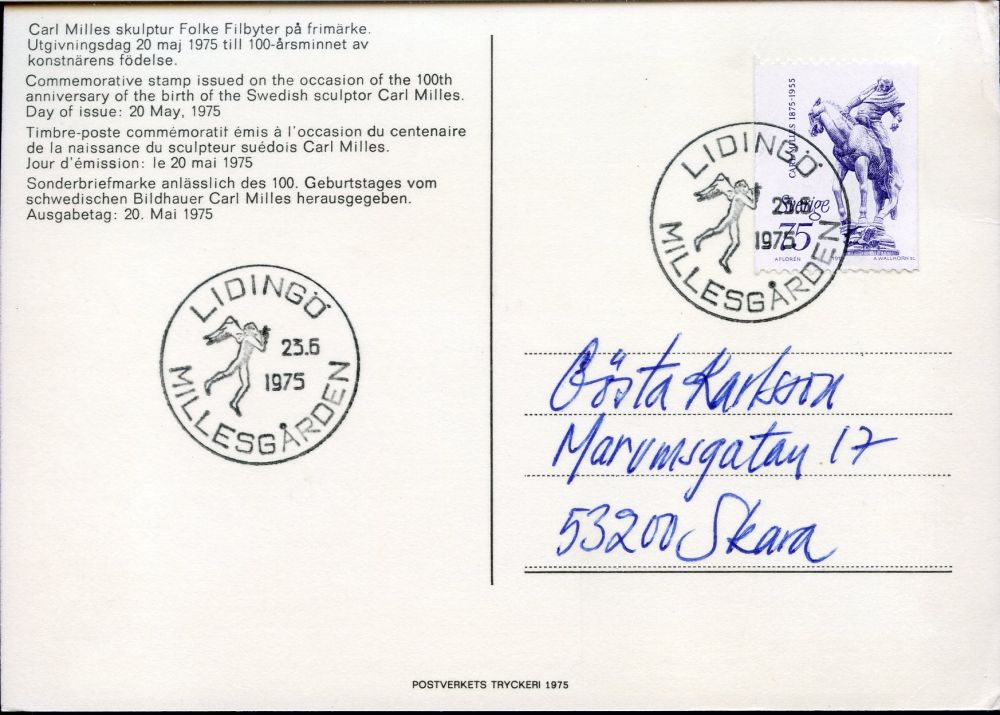 Carl Milles skulptur Folke Filbyter på frimärke.
Utgivningsdag 20 maj 1975 till 100-årsminnet av
konstnärens födelse.
Commemorative stamp issued on the occasion of the 100th
anniversary of the birth of the Swedish sculptor Carl Milles.
Day of issue: 20 May, 1975
Timbre-poste commémoratif émis à l'occasion du centenaire
de la naissance du sculpteur suédois Carl Milles.
Jour d'émission: le 20 mai 1975
Sonderbriefmarke anlässlich des 100. Geburtstages vom
schwedischen Bildhauer Carl Milles herausgegeben.
Ausgabetag: 20. Mai 1975
LIDINGÖ
23.6
1975
MILLESGÅRDEN
CARL MILLES 1875-1955
Sverige
75
A FLORÉN
A WALLHORN SC
LIDINGÖ
23.6
1975
MILLESGÅRDEN
Gösta Karlsson
Marumsgatan 17
53200 Skara
POSTVERKETS TRYCKERI 1975